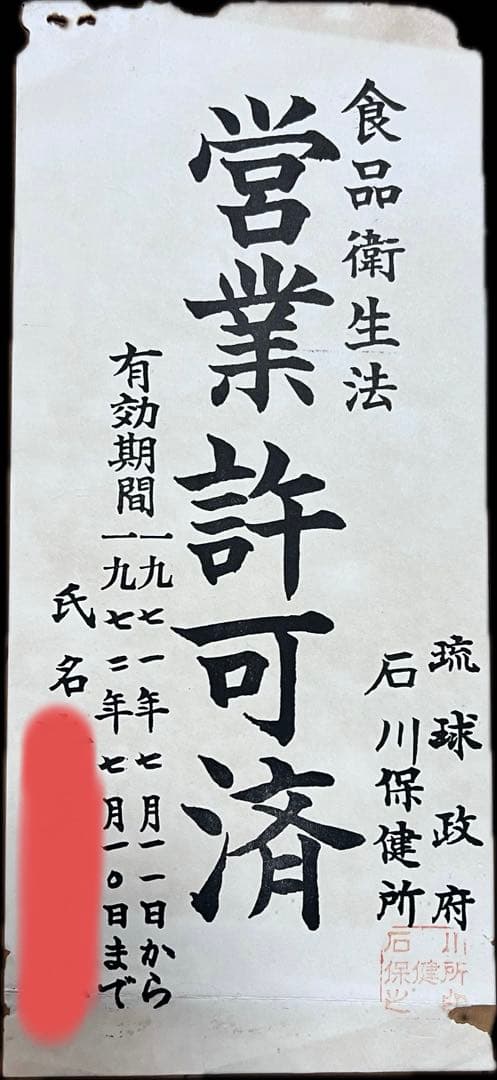 食品衛生法
営業許可済
琉球政府
石川保健所
有効期間
一九七一年七月一一日から
一九七二年七月一〇日まで
氏名